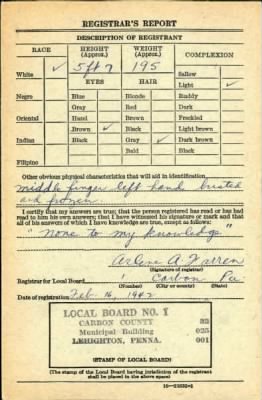 REGISTRAR'S REPORT
DESCRIPTION OF REGISTRANT
RACE HEIGHT (Approx.) WEIGHT (Approx.) COMPLEXION
White ✓ 5 ft 7 195 Sallow
EYES HAIR Light ✓
Negro Blue Blonde Ruddy
Gray Red Dark
Oriental Hazel Brown Freckled
Brown ✓ Black Light brown
Indian Black Gray ✓ Dark brown
Bald Black
Filipino
Other obvious physical characteristics that will aid in identification
middle finger left hand
and
I certify that my answers are true; that the person registered has read or has had
read to him his own answers; that I have witnessed his signature or mark and that
all of his answers of which I have knowledge are true, except as follows:
"None to my knowledge"
Arlene A.
(Signature of registrar)
Registrar for Local Board 1 Carbon Pa
(Number) (City or county) (State)
Date of registration Feb. 16, 1942
LOCAL BOARD NO. 1
CARBON COUNTY 32
Municipal Building 025
LEHIGHTON, PENNA. 001
(STAMP OF LOCAL BOARD)
(The stamp of the Local Board having jurisdiction of the registrant
shall be placed in the above space.)